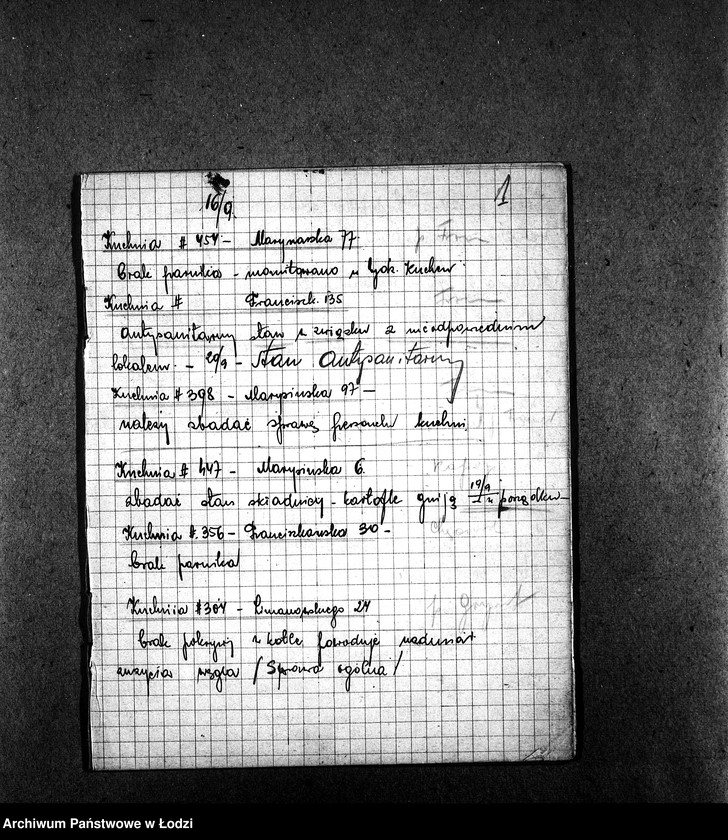 1
16/9
Kuchnia # 454 - Marynarska 77
brak parnika - monitowano w Wydz. Kuchen
Kuchnia # Franciszk. 135
Antysanitarny stan w związku z nieodpowiednim
lokalem. - 20/9 - Stan antysanitarny
Kuchnia # 398 - Marysińska 97 -
należy zbadać sprawę personelu kuchni.
Kuchnia # 447 - Marysińska 6
zbadać stan składnicy - kartofle gniją 19/9 w porządku
Kuchnia #. 356 - Franciszkańska 30 -
brak parnika
Kuchnia # 304 - Limanowskiego 24
brak pokrywy w kotle powoduje nadmiar
zużycia węgla / Sprawa ogólna /
Archiwum Państwowe w Łodzi